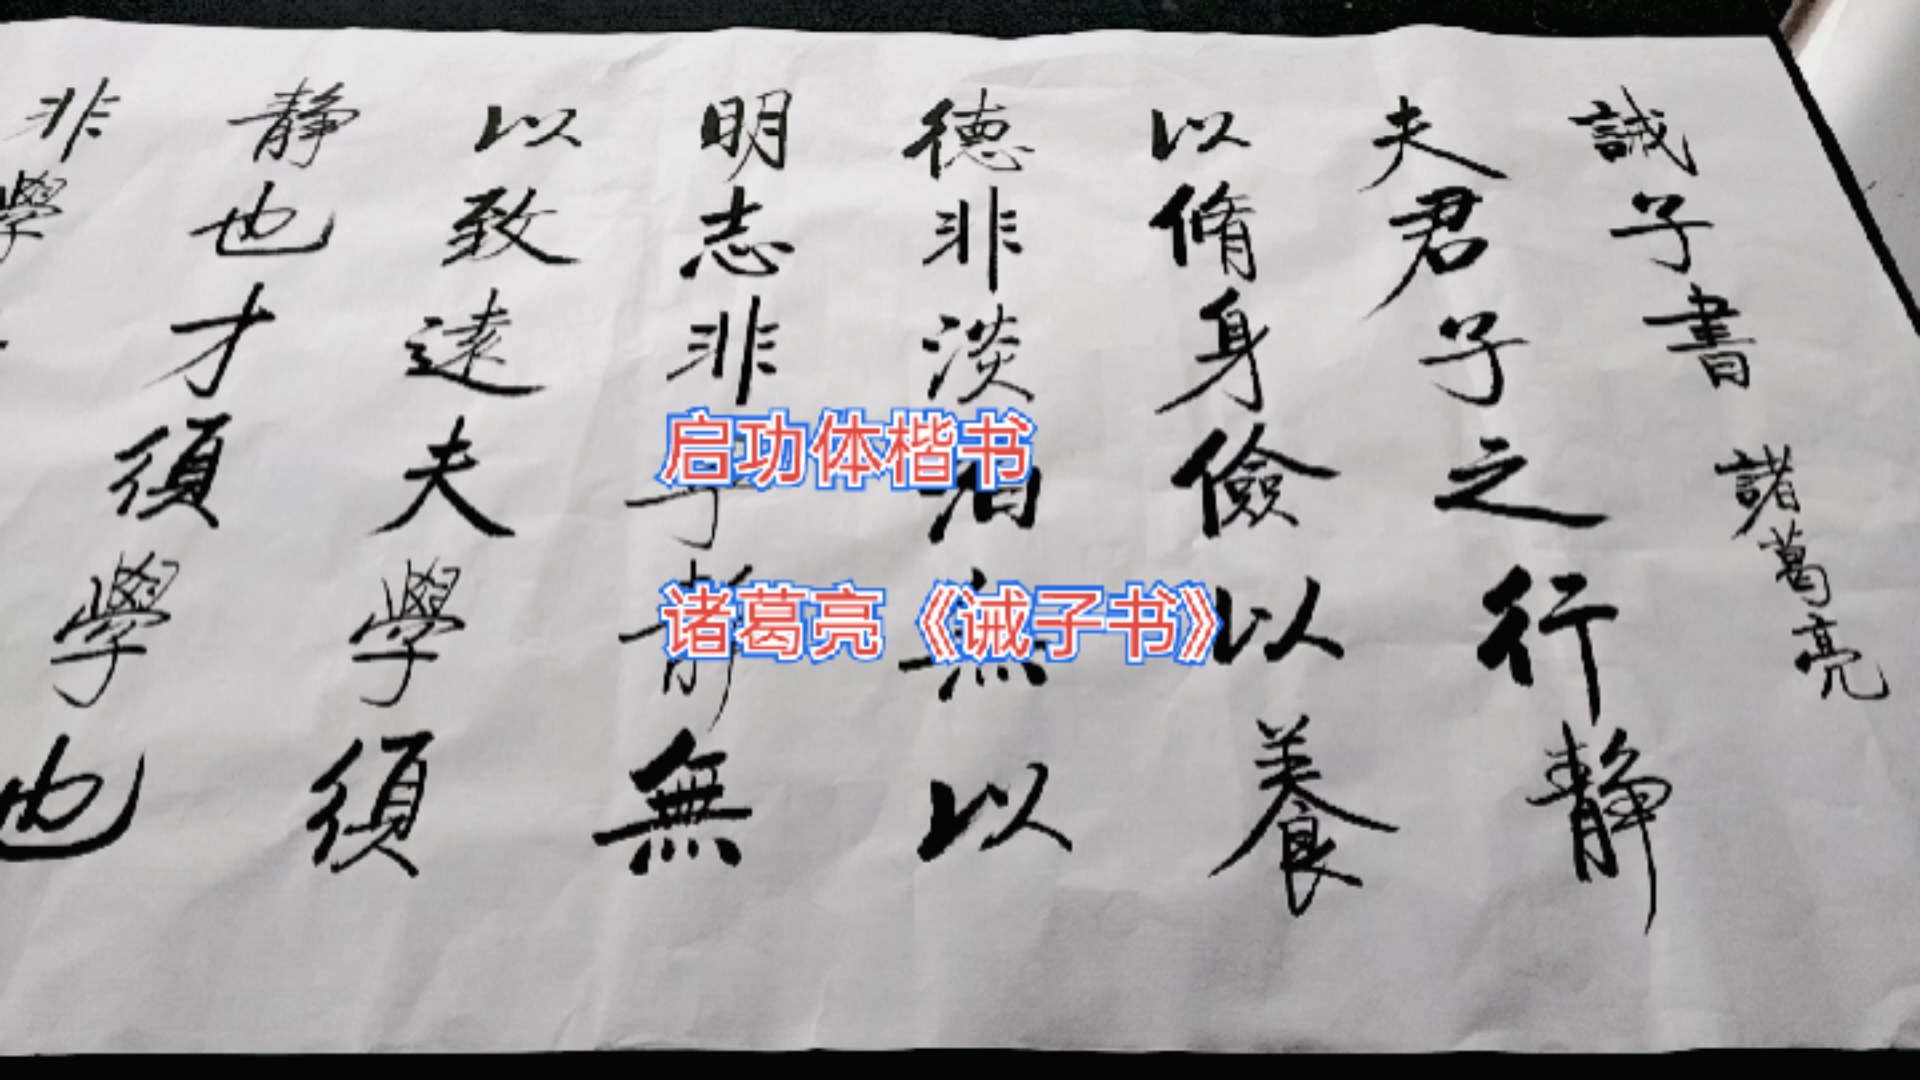 誡子書 諸葛亮
夫君子之行静
以脩身儉以養
德非淡泊無以
明志非静無
以致遠夫學須
静也才須學也
非學
启功体楷书
诸葛亮《诫子书》